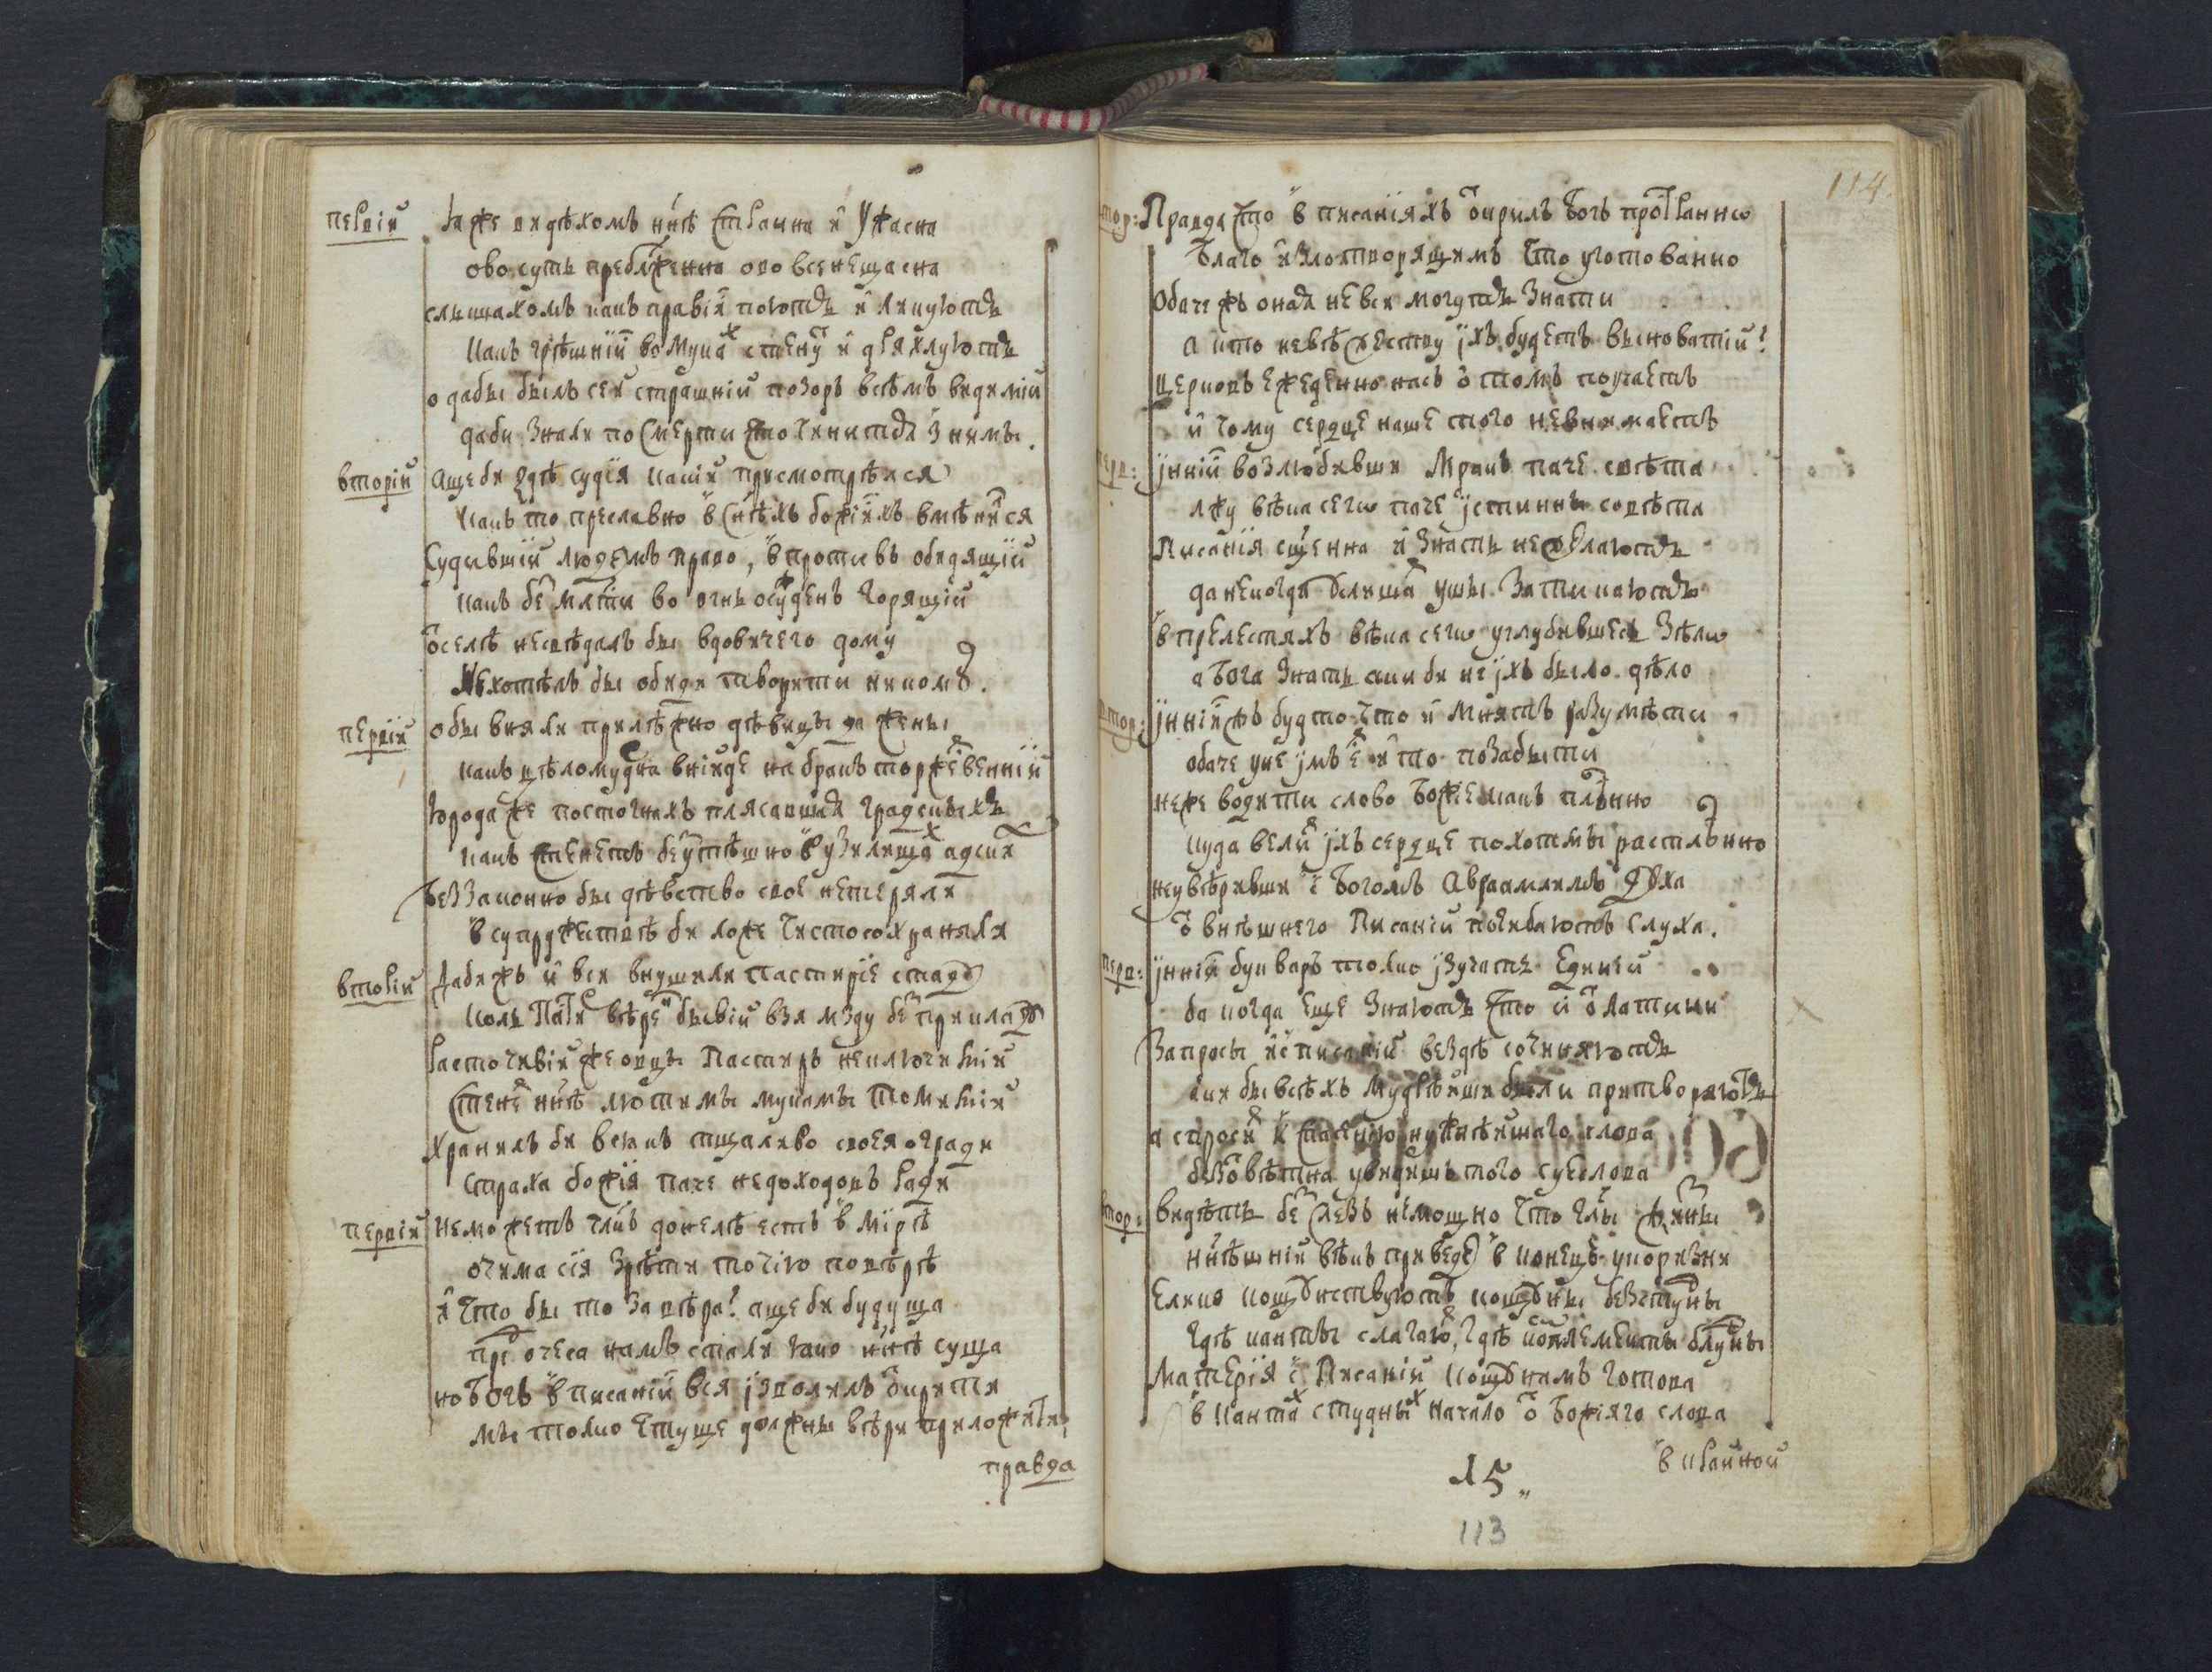 первїй Jаже видѣхомъ нн҃ѣ странна и ужасна
ово суть преблаженна ово все нещасна
слышахомъ какъ правїи поютъ и ликуютъ
какъ грѣшнїи во мукахъ стенутъ и дряхлуютъ
о дабы былъ сей страшнїй позоръ всѣмъ видимїй
даби знали по смерти что чинится з ними.
вторїй аще би здѣ судїя какїй присмотрѣлся
какъ то преславно в сн҃ѣхъ божїихъ вмѣнился
Судившїй людемъ право, в противъ обидящїй
какъ без милости во огнь осужденъ горящїй
отселѣ несвѣдалъ бы вдовичего дому
Нехотѣлъ бы обиди творити никому.
первїй обы вняли прилѣжно дѣвицы да жены
какъ цѣломудра внїйде на бракъ торжественнїй
юрода же посточнихъ плясавшая градскихъ
какъ стенетъ безутѣшно в узилищахъ адских
Беззаконно бы дѣвство свое нетеряли
в супружествѣ би ложе чисто сохраняли
вторїй Дабижъ и вси внушили пастирїе стаду
коль патриархъ бывїй взя мзду без прикладу
расточивїй же овцы Пастиръ неключимїй
стенетъ нн҃ѣ лютими муками томимїй
хранилъ би всякъ тщаливо своея огради
Страха божїя паче недоходовъ ради
первїй неможетъ чл҃къ донелѣ естъ в мїрѣ
очима сїя зрѣти точїю по вѣрѣ
и что бы то за вѣра? аще би будуща
пред очеса намъ стали яко нн҃ѣ суща
но Богъ в писанїи вся изволилъ открити
мы толко чтуще должны вѣри приложити,
правда
114.
втор: Правда что в писанїяхъ открилъ Богъ пространно
Благо и злотворящимъ что уготованно
Обаче жъ оная невси могутъ знати
а кто невѣжеству ихъ будетъ выноватїй?
церковъ ежеденно насъ о томъ поучаетъ
и чому сердце наше того невнимаетъ
перв: иннїи возлюбивши мракъ паче свѣта
лжу вѣка сего паче истиннъ совѣта
Писанїя сщ҃енна и знать не желаютъ
да некогда слиша ушы затикаютъ
в прелестяхъ вѣка сего углубившесь зѣло
а Бога знать аки би не ихъ было дѣло
втор: иннїи жъ будто что и мнятъ разумѣти
обаче уже имъ е и то позабыти
неже водити слово Божїе какъ плѣнно
куда велитъ ихъ сердце похотмы растлѣнно
неувѣривши с Богомъ Авраамлимъ Духа
о внѣшнего Писанїй погибаютъ слуха.
перв: иннїи букваръ толко изучатъ единей
да когда еще знаютъ что и о латини
Запросы ис писанїй вездѣ сочиняютъ
аки бы всѣхъ мудрѣйши были притворяютъ
а спроси к спасенїю нужнѣйшаго слова
без отвѣтна увидишъ того суеслова
втор: видѣть без слезъ немощно что
нн҃ѣшнїй вѣкъ приведе в конецъ укоризни
Елико кощунствуютъ кощуны безстудны
гдѣ канты слагаютъ, гдѣ комплементы блудны
Матерїя с Писанїй кощунамъ готова
в кантахъ студныхъ начало о Божїяго слова
в крайной
15
113